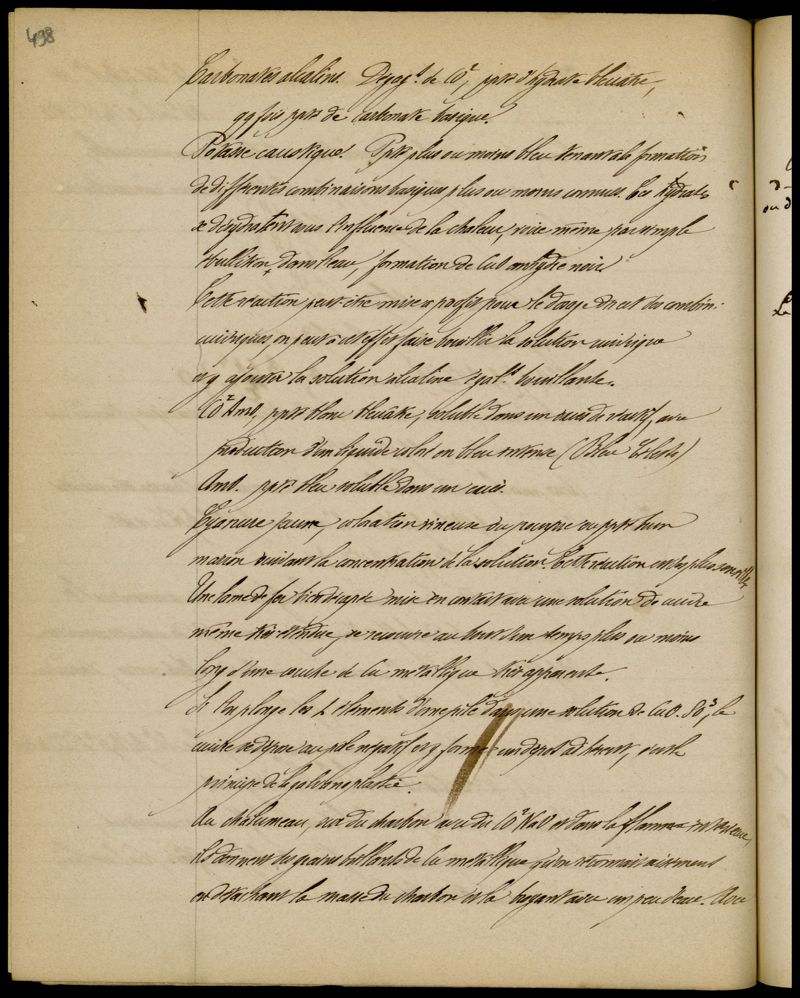 498
Carbonates alcalins. Dégagt. de CO², ppté d'hydrate bleuâtre,
qq fois ppté de carbonate basique.
Potasse caustique. Ppté plus ou moins bleu tenant à la formation
de différentes combinaisons basiques plus ou moins connues. Ces hydrates
se déshydratent sous l'influence de la chaleur, voire même par simple
ébullition dans l'eau, formation de CuO anhydre noir.
Cette réaction peut être mise à profit pour le dosage direct des combin.
cuivriques, on peut à cet effet faire bouillir la solution cuivrique
et y ajouter la solution alcaline égalt. bouillante.
CO² Amb. ppté blanc bleuâtre, soluble dans un excès de réactif, avec
production d'un liquide coloré en bleu intense (Bleu Céleste)
Amb. ppté bleu soluble dans un excès.
Cyanure jaune, coloration vineuse du pourpre au ppté brun
marron suivant la concentration de la solution. Cette réaction est des plus sensibles
Une lame de fer bien décapée mise en contact avec une solution de cuivre
même très étendue, se recouvre au bout d'un temps plus ou moins
long d'une couche de Cu métallique très apparente.
Si l'on plonge les 2 éléments d'une pile dans une solution de CuO. SO³, le
cuivre se dépose au pôle négatif et y forme un dépôt adhérent, c'est le
principe de la galvanoplastie.
Au chalumeau, sur du charbon avec du CO² NaO et dans la flamme
ils donnent des grains brillants de Cu métallique qu'on reconnait aisément
en détachant la masse du charbon et la broyant avec un peu d'eau. Avec